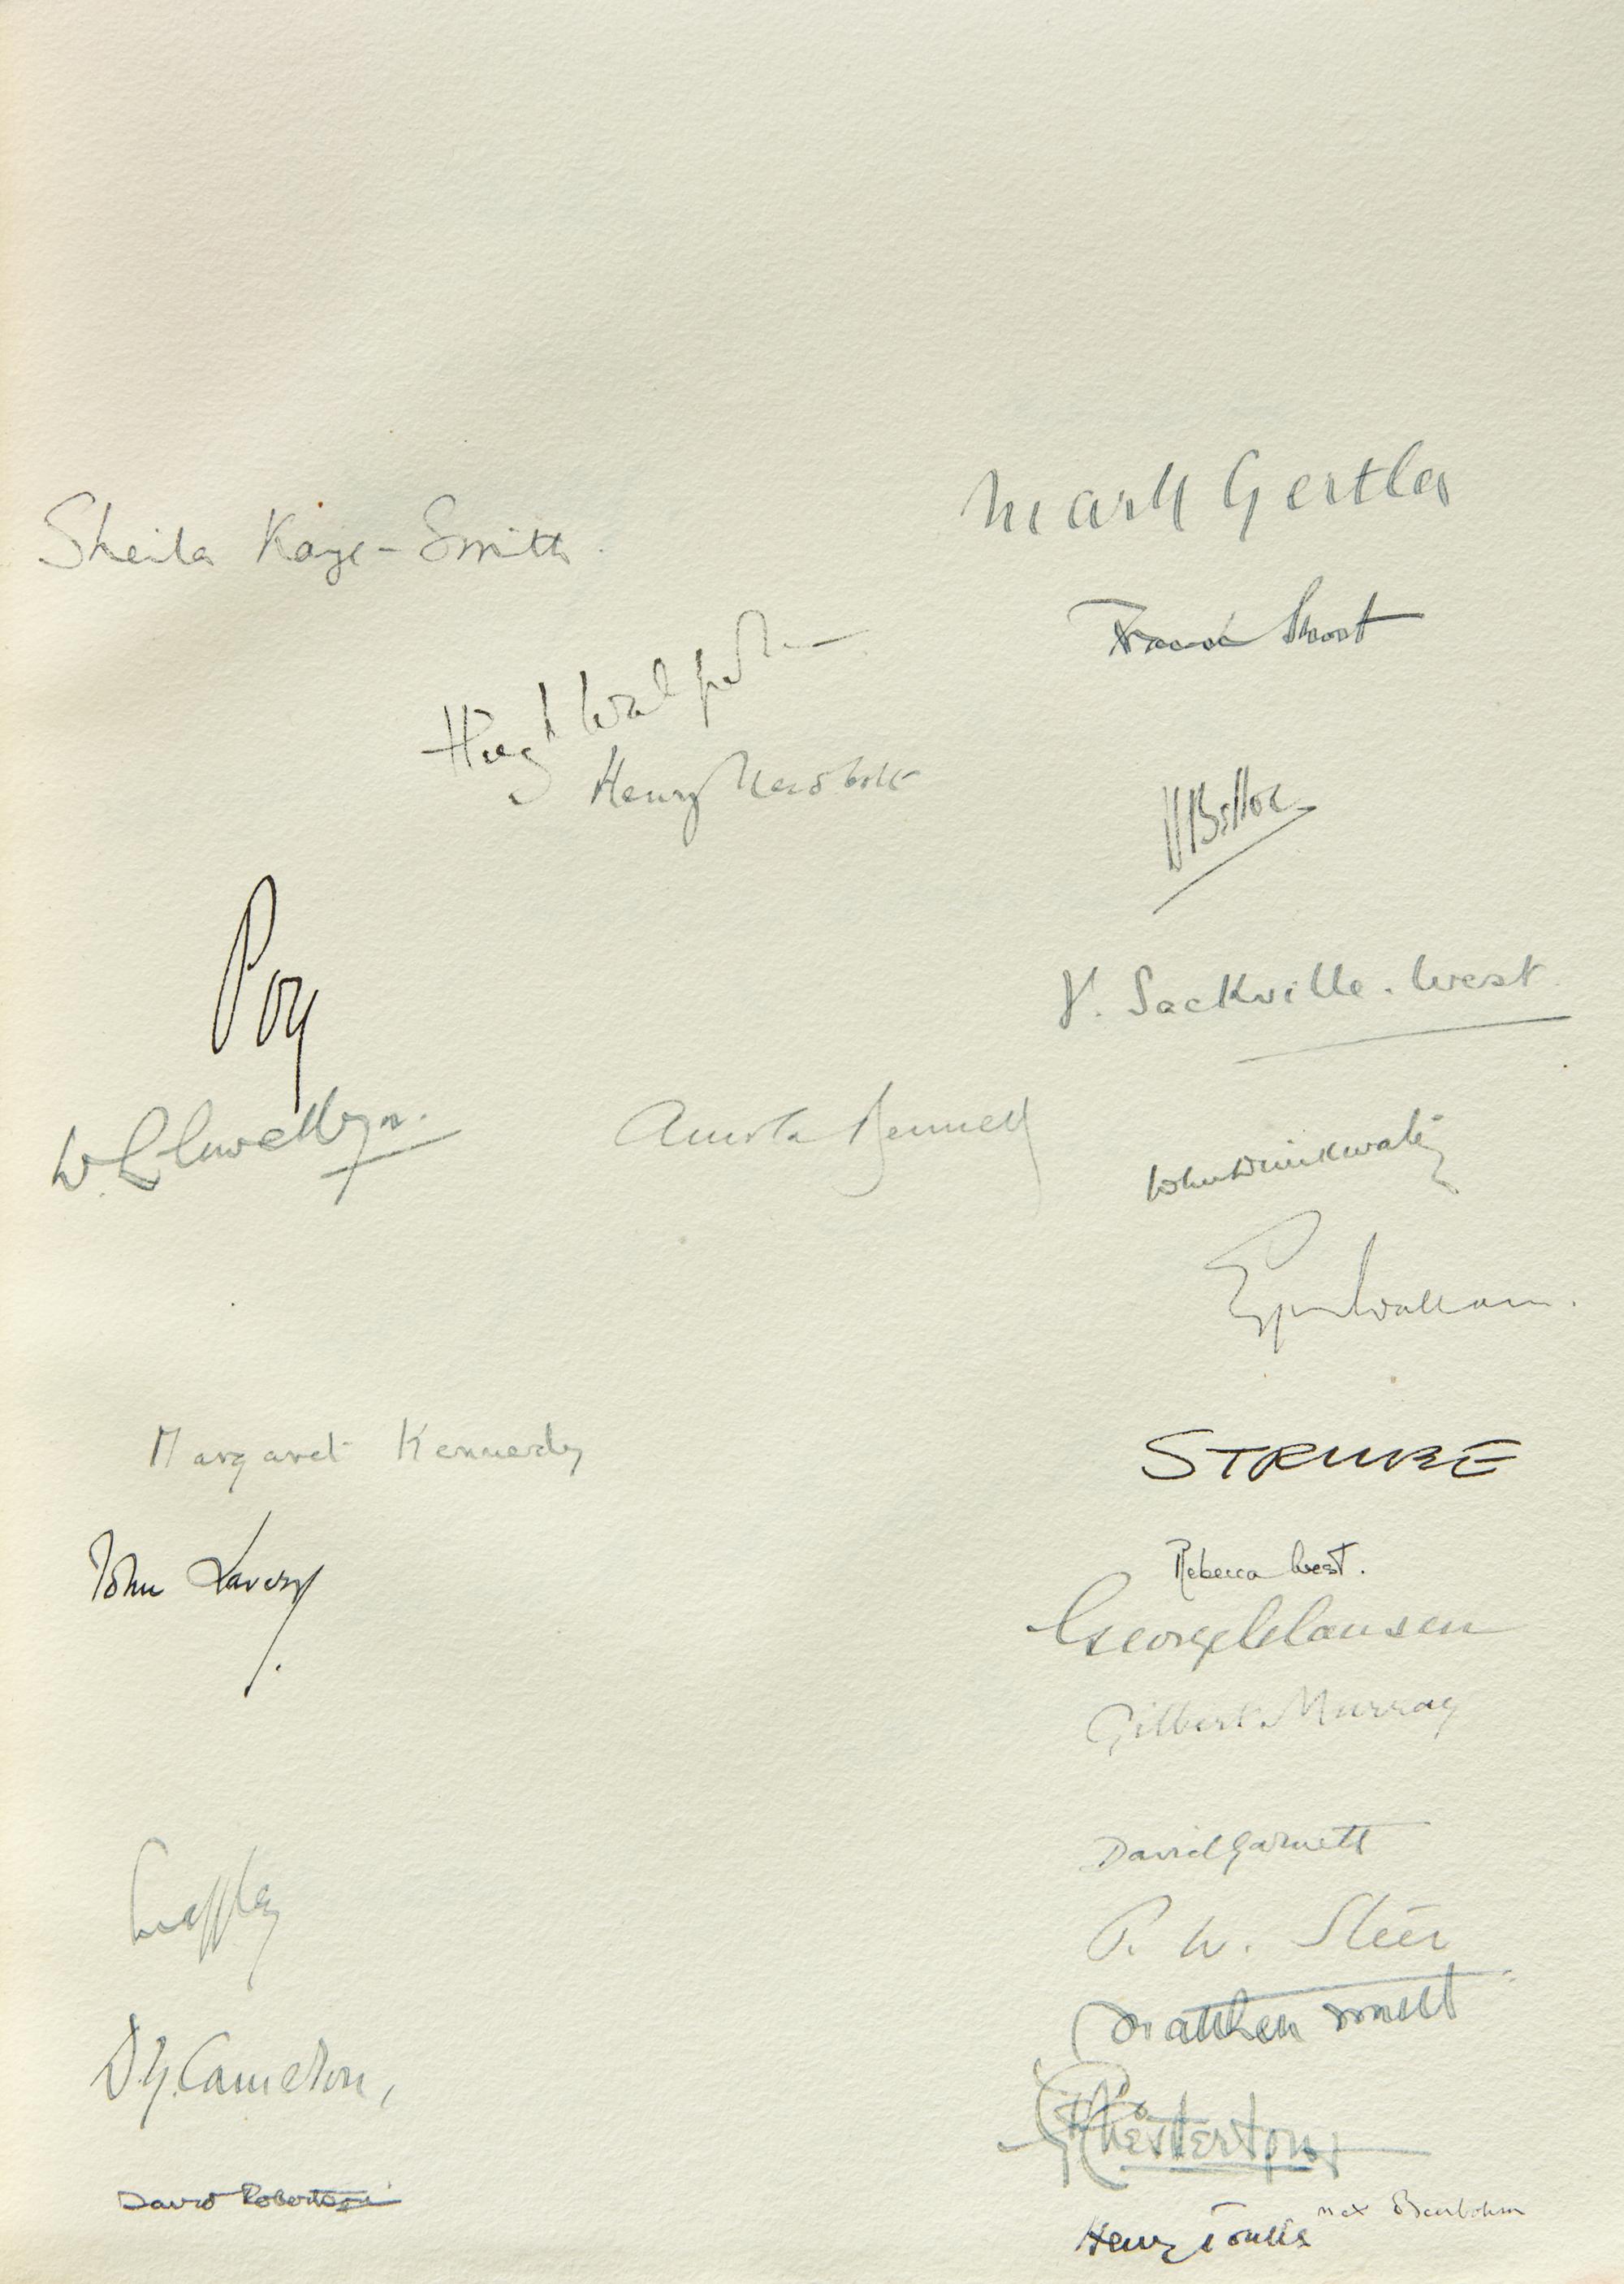 Sheila Kaye-Smith.
Mark Gertler
Frank Short
Hugh Walpole
Henry Newbolt
H Belloc
Poy
V. Sackville-West.
W. Llewellyn.
Arnold Bennett
John Drinkwater
Margaret Kennedy
STRUBE
John Lavery.
Rebecca West.
George Clausen
Gilbert Murray
David Garnett
P. W. Steer
D. Y. Cameron,
Matthew Smith
GK Chesterton
David Robertson
Max Beerbohm
Henry Tonks